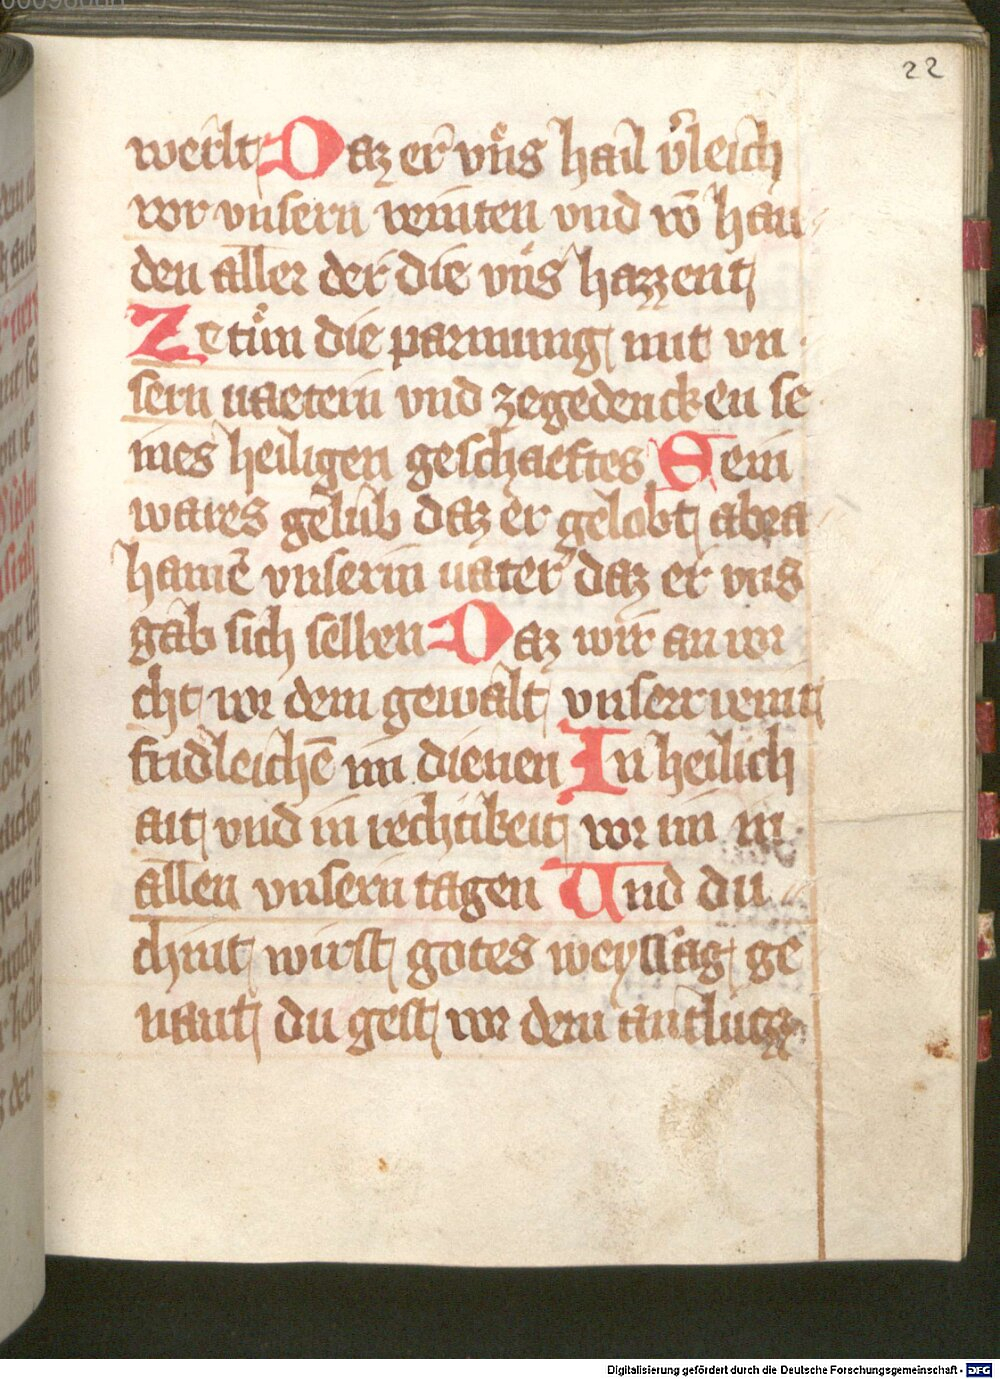 22
werlt Daz er vns hail v̾leich
vor vnsern veinten vnd võ han
den aller der die vns hazzent
Ze tůn die parmung mit vn
sern vaetern vnd zegedencken se
ines heiligen geschaeftes Sein
wares gelub daz er gelobt abra
hamẽ vnserm vater daz er vns
gab sich selben Daz wir an vor
cht vor dem gewalt vnserr veint
fridleichẽ im dienen In heilich
ait vnd in rechtikeit vor im in
allen vnsern tagen Und du
chint wirst gotes weyssag ge
nant du gest vor dem antlutz
Digitalisierung gefördert durch die Deutsche Forschungsgemeinschaft - DFG